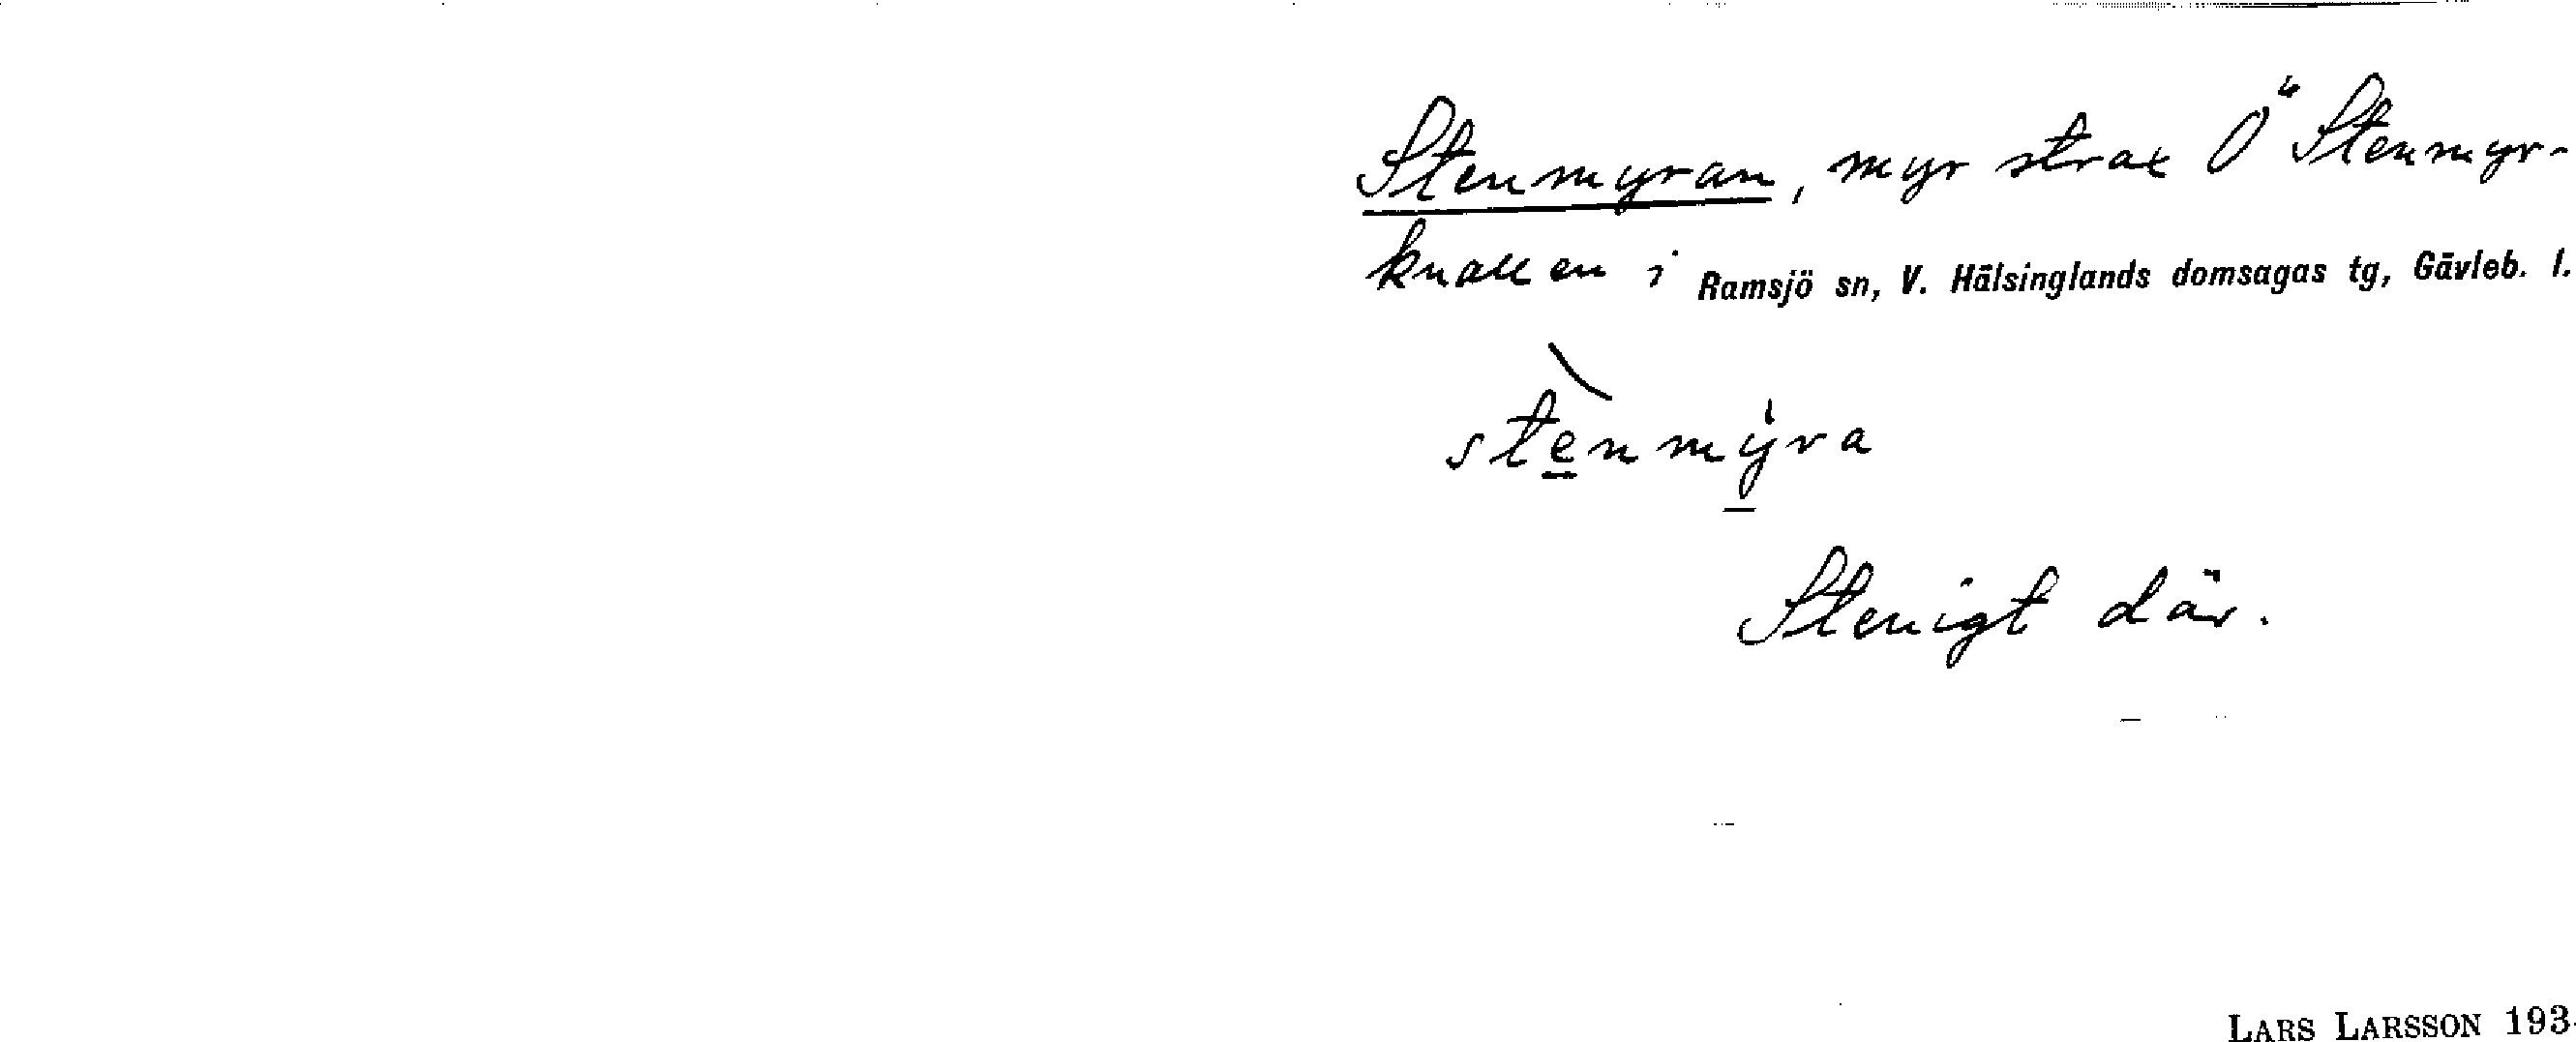 Stenmyran, myr strax Ö Stenmyr-
knallen i Ramsjö sn, V. Hälsinglands domsagas tg, Gävleb. l.
stènmy̍ra
Stenigt där.
LARS LARSSON 193